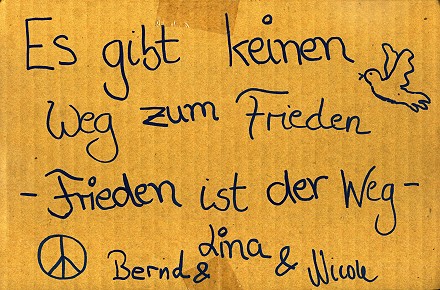 Es gibt keinen
Weg zum Frieden
- Frieden ist der Weg -
Bernd & Lina & Nicole